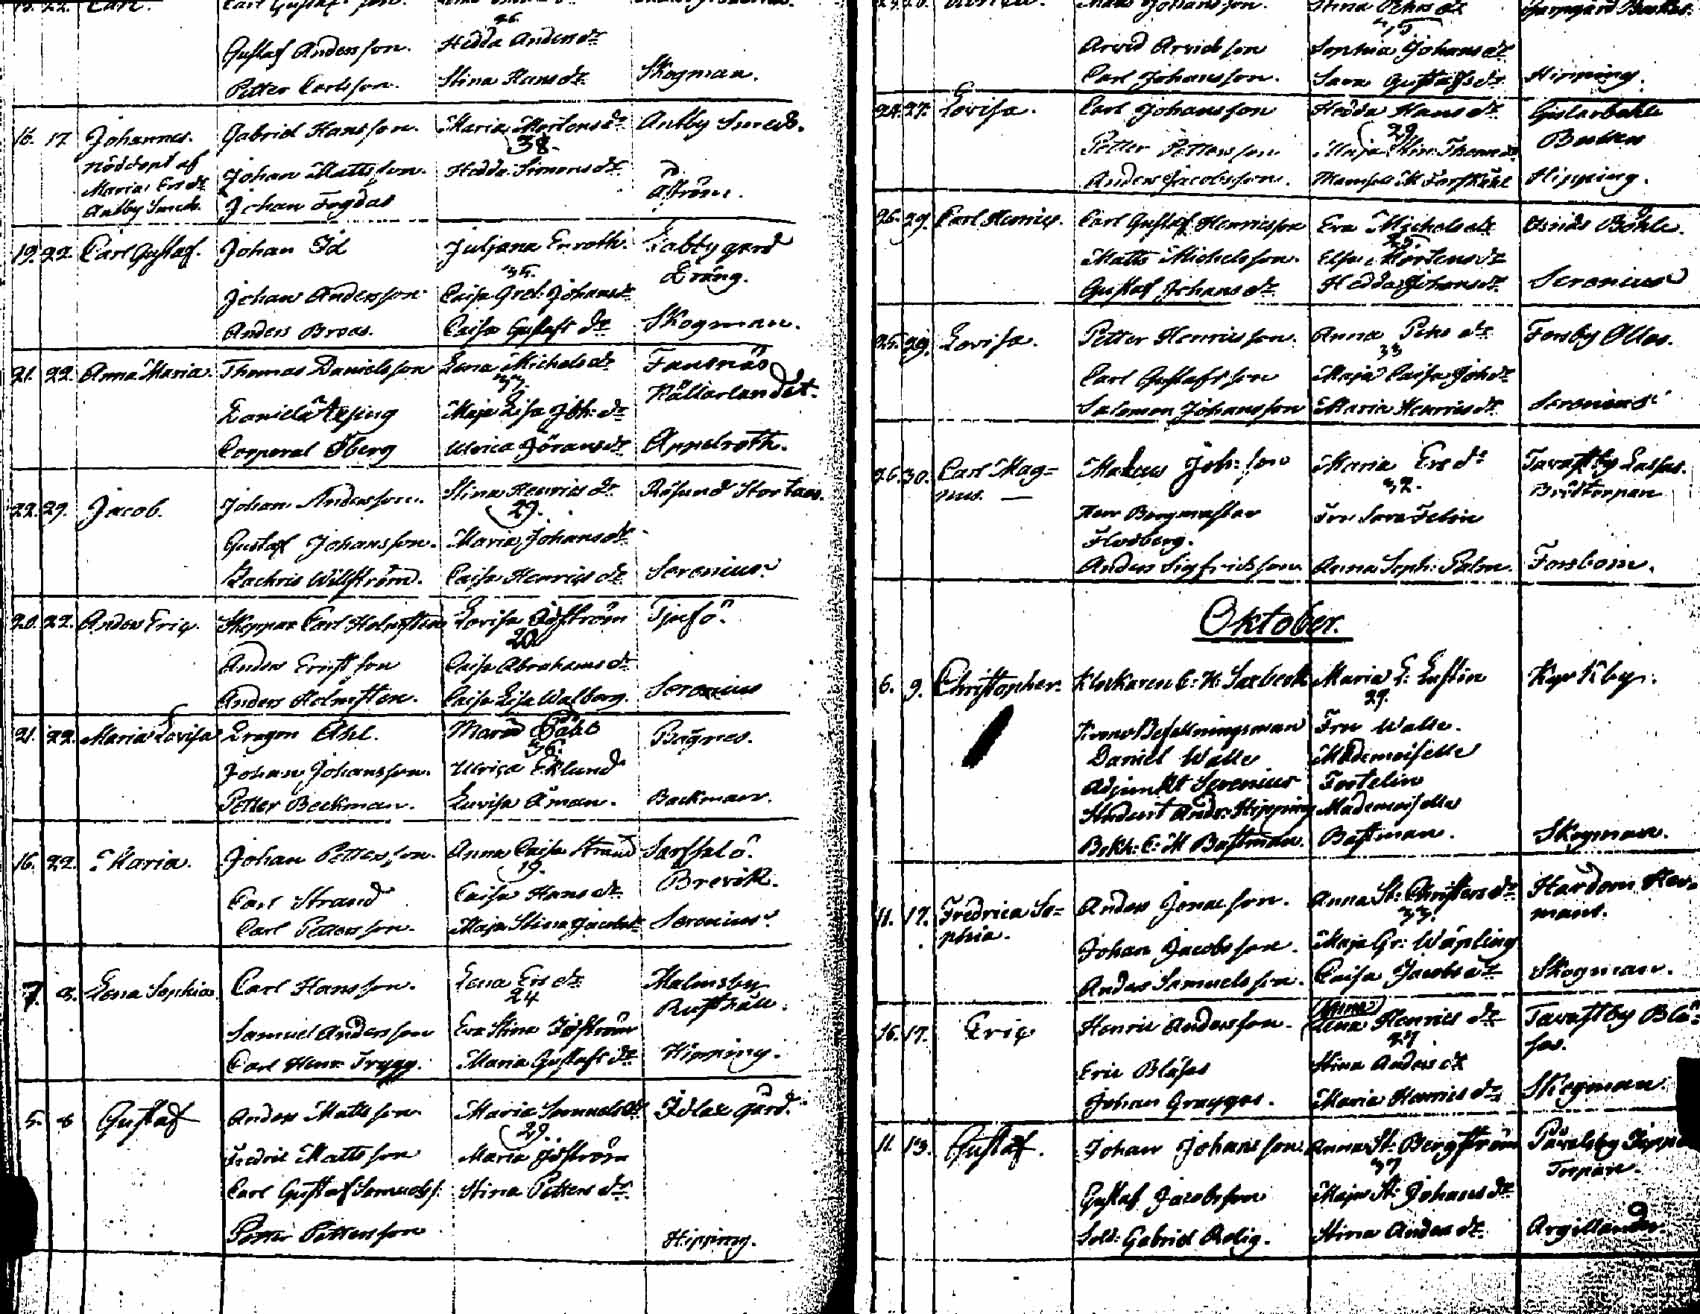 Gustaf Andersson. Hedda Andersdr
Petter Carlsson. Stina Hansdr Skogman.
16. 17 Johannes. Gabriel Hansson. Maria Mortensdr Anby Smeds.
38.
Nöddopt af Johan Mattsson. Hedda Simonsdr
Maria Ersdr
Anby Smeds. Johan Fogdas
19. 22. Carl Gustaf. Johan Id Juljana Enroth. Labby gård
35. Dräng.
Johan Andersson Caisa Gret: Johansdr
Anders Broas. Caisa Gustafsdr Skogman.
21. 22. Anna Maria. Thomas Danielsson Lena Michelsdr Fantsnäs
37. Källarlandet.
Maja Lisa Joh:dr
Corporal Öberg Ulrica Göransdr Appelroth.
22. 29. Jacob. Johan Andersson. Stina Henricsdr Räfsund
29.
Gustaf Johansson. Maria Johansdr
Zachris Willström. Caisa Henricsdr Serenius.
20. 22. Anders Eric. Skeppar Carl Holmsten Lovisa Sjöström Tjusö.
20
Anders Ernstson Caisa Abrahamsdr
Anders Holmsten. Caisa Lisa Walberg. Serenius
21. 22. Maria Lovisa Dragon Ekel. Maria Baggnes.
36.
Johan Johansson. Ulrica Eklund
Petter Beckman. Lovisa Åman. Backman.
16. 22. Maria. Johan Pettersson. Anna Caisa Strand Sarfsalö.
19. Brevik.
Carl Strand Caisa Hansdr
Carl Pettersson. Maja Stina Jacobsdr Serenius.
7. 8. Lena Sophia Carl Hansson. Lena Ersdr Malmsby
24 Rusthåll.
Samuel Andersson Eva Stina Sjöström
Carl Henr: Trygg. Maria Gustafsdr Hipping.
5. 8 Gustaf Anders Mattsson. Maria Samuelsdr gård.
29.
Fredric Mattsson Maria Sjöström
Carl Gustaf Samuelss. Stina Pettersdr
Petter Pettersson Hipping.
Arvid Arvidsson Sophia Johansdr
Carl Johansson. Sara Gustafsdr Hipping.
24. 27. Lovisa. Carl Johansson Hedda Hansdr Gislarböhle
29. Backas
Petter Pettersson
Anders Jacobsson. Mamsell M Forsskåhl Hipping.
26. 29. Carl Henric. Carl Gustaf Henricsson Eva Michelsdr Böhle.
25.
Matts Michelsson. Elsa Mortensdr
Gustaf Johansdr Hedda Johansdr Serenius
25. 29. Lovisa. Petter Henricsson. Anna Petersdr Forsby Olles.
33
Carl Gustafsson Maja Caisa Joh:dr
Salomon Johansson Maria Henricsdr Serenius
26. 30. Carl Mag= Joh: son Maria Ersdr Tavastby Lassas.
nus. 32.
Herr Bergmästar Fru Sara Felin
Flodberg.
Anders Sigfridsson Anna Soph: Palm. Forsbom.
Oktober.
6. 9. Christopher. Klockaren C: H: Saxbeck Maria L: Luftin Kyrkby.
29.
Krono Befallningsman Fru Walle.
Daniel Walle Mademoiselle
Adjunkt Serenius Fortelin
Student Andr: Hipping Mademoiselle
Bokh: C: M Bastman. Bastman. Skogman.
11. 17. Fredrica So= Anders Jonasson. Anna St: Christersdr Hardom Her=
phia. 33. mans.
Johan Jacobsson. Maja Gr: Wäpling
Anders Samuelsson. Caisa Jacobsdr Skogman.
16. 17. Eric Henric Andersson. (Anna) Lena Henricsdr Tavastby Blå=
27 sas.
Eric Blåsas Stina Andersdr
Johan Graggas. Maria Henricsdr Skogman
11. 13. Gustaf. Johan Johansson Anna St: Bergström
37 Torpare.
Gustaf Jacobsson Maja St: Johansdr
Sold: Gabriel Rolig. Stina Andersdr Argillander